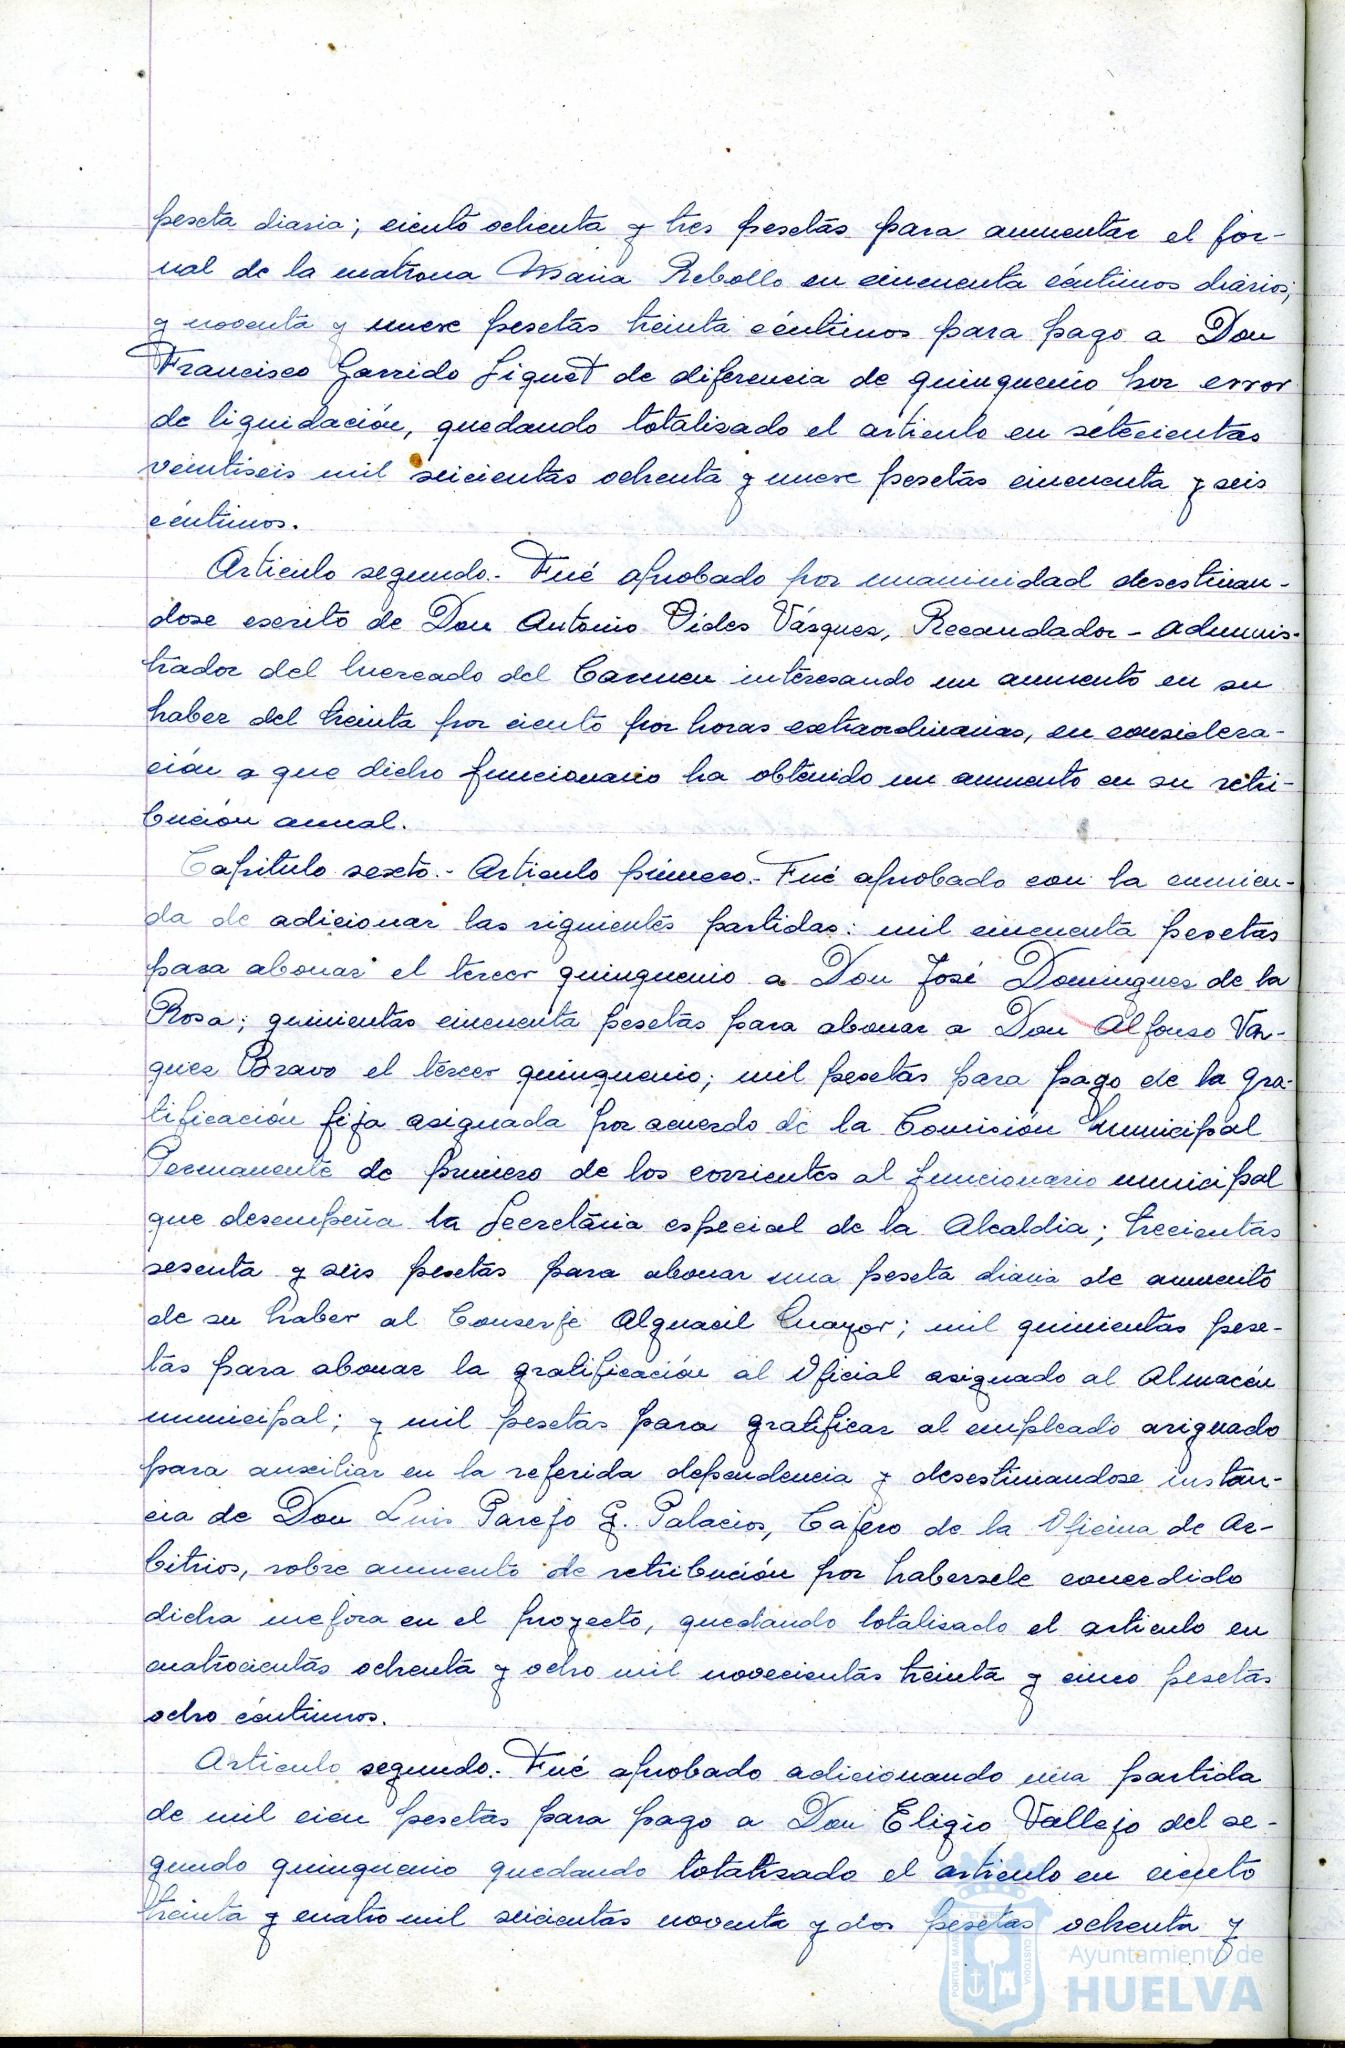 peseta diaria; ciento ochenta y tres pesetas para aumentar el jor-
nal de la matrona Maria Rebollo en cincuenta céntimos diarios;
y noventa y nueve pesetas treinta céntimos para pago a Don
Francisco Garrido Siguet de diferencia de quinquenio por error
de liquidación, quedando totalisado el articulo en setecientas
veintiseis mil seicientas ochenta y nueve pesetas cincuenta y seis
céntimos.
Articulo segundo.- Fué aprobado por unanimidad desestiman-
dose escrito de Don Antonio Vides Vásques, Recaudador-Adminis-
trador del Mercado del Carmen interesando un aumento en su
haber del treinta por ciento por horas extraordinarias, en considera-
ción a que dicho funcionario ha obtenido un aumento en su retri-
bución anual.
Capitulo sexto.- Articulo primero.- Fué aprobado con la enmien-
da de adicionar las siguientes partidas: mil cincuenta pesetas
para abonar el tercer quinquenio a Don José Domingues de la
Rosa; quinientas cincuenta pesetas para abonar a Don Alfonso Vas-
ques Bravo el tercer quinquenio; mil pesetas para pago de la gra-
tificación fija asignada por acuerdo de la Comisión Municipal
Permanente de primero de los corrientes al funcionario municipal
que desempeña la Secretaria especial de la Alcaldia; trecientas
sesenta y seis pesetas para abonar una peseta diaria de aumento
de su haber al Conserje Alguacil Mayor; mil quinientas pese-
tas para abonar la gratificación al Oficial asignado al Almacén
municipal; y mil pesetas para gratificar al empleado asignado
para auxiliar en la referida dependencia y desestimandose instan-
cia de Don Luis Parejo G. Palacios, Cajero de la Oficina de Ar-
bitrios, sobre aumento de retribución por habersele concedido
dicha mejora en el proyecto, quedando totalisado el articulo en
cuatrocientas ochenta y ocho mil novecientas treinta y cinco pesetas
ocho céntimos.
Articulo segundo.- Fué aprobado adicionando una partida
de mil cien pesetas para pago a Don Eligio Vallejo del se-
gundo quinquenio quedando totalisado el articulo en ciento
treinta y cuatro mil seicientas noventa y dos pesetas ochenta y
PORTUS MARIS
CUSTODIA
Ayuntamiento de
HUELVA